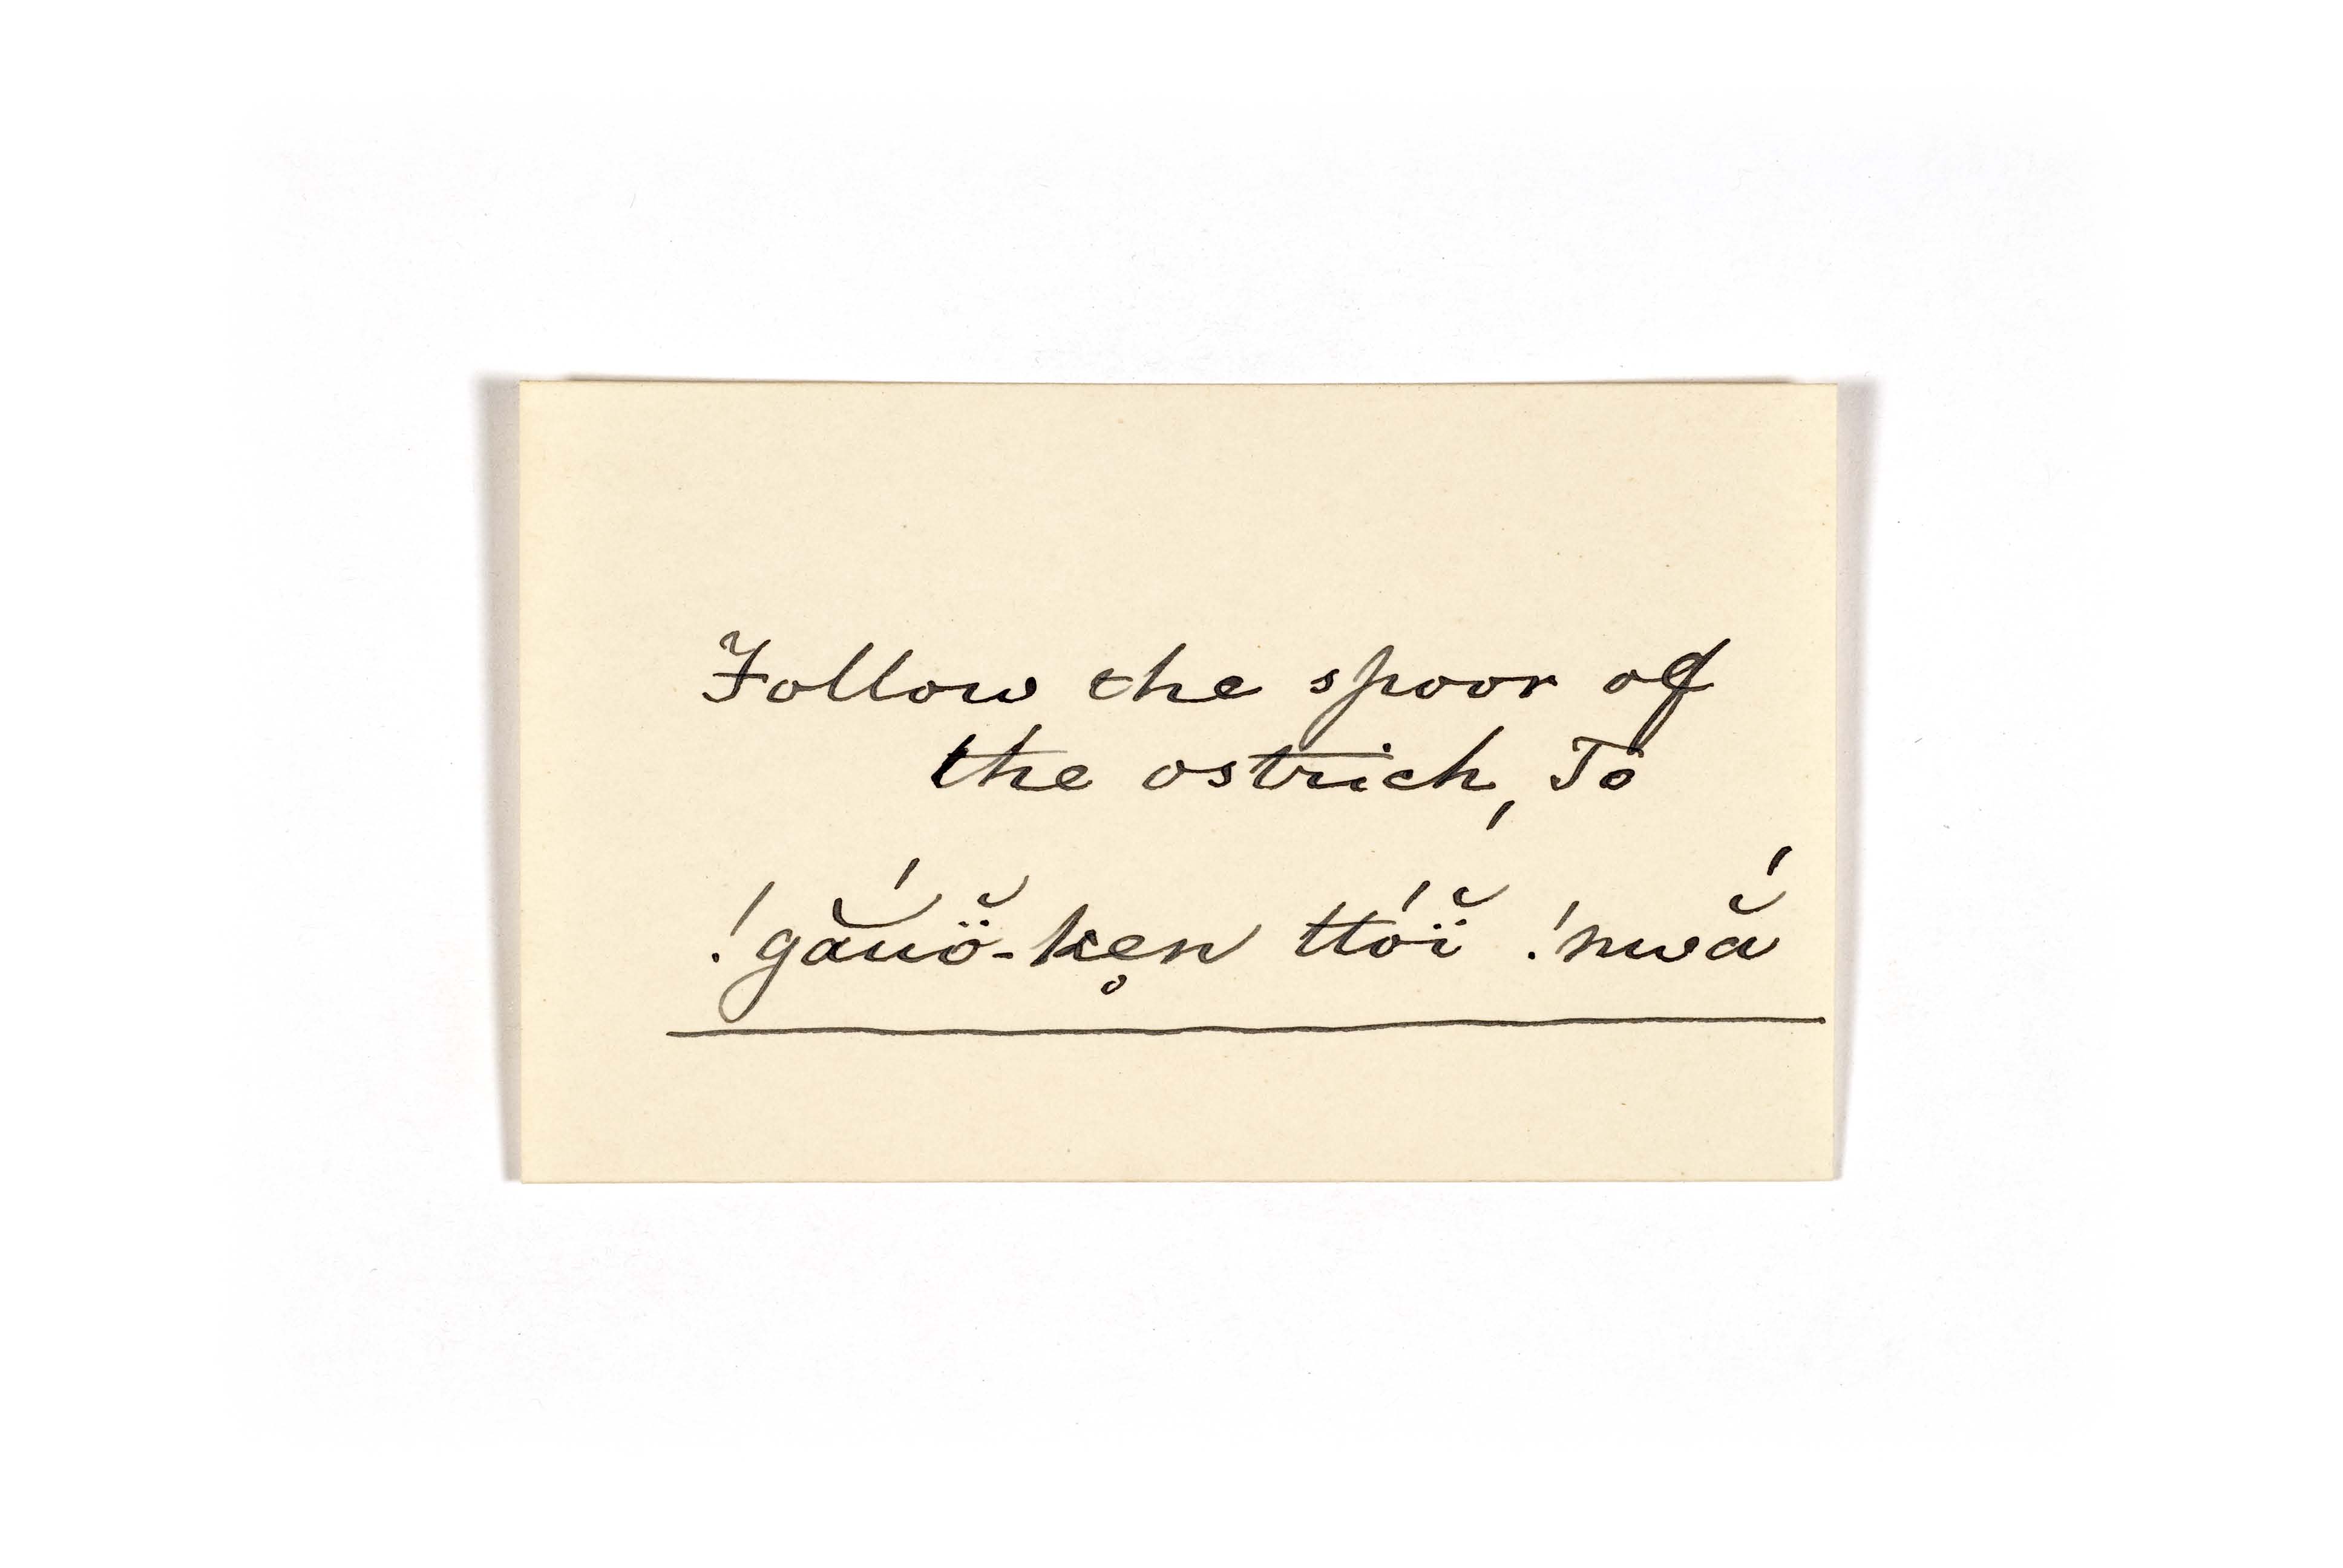 Follow the spoor of
the ostrich, To
!gắuö̆-ken̥ ttóï̆ !nwắ